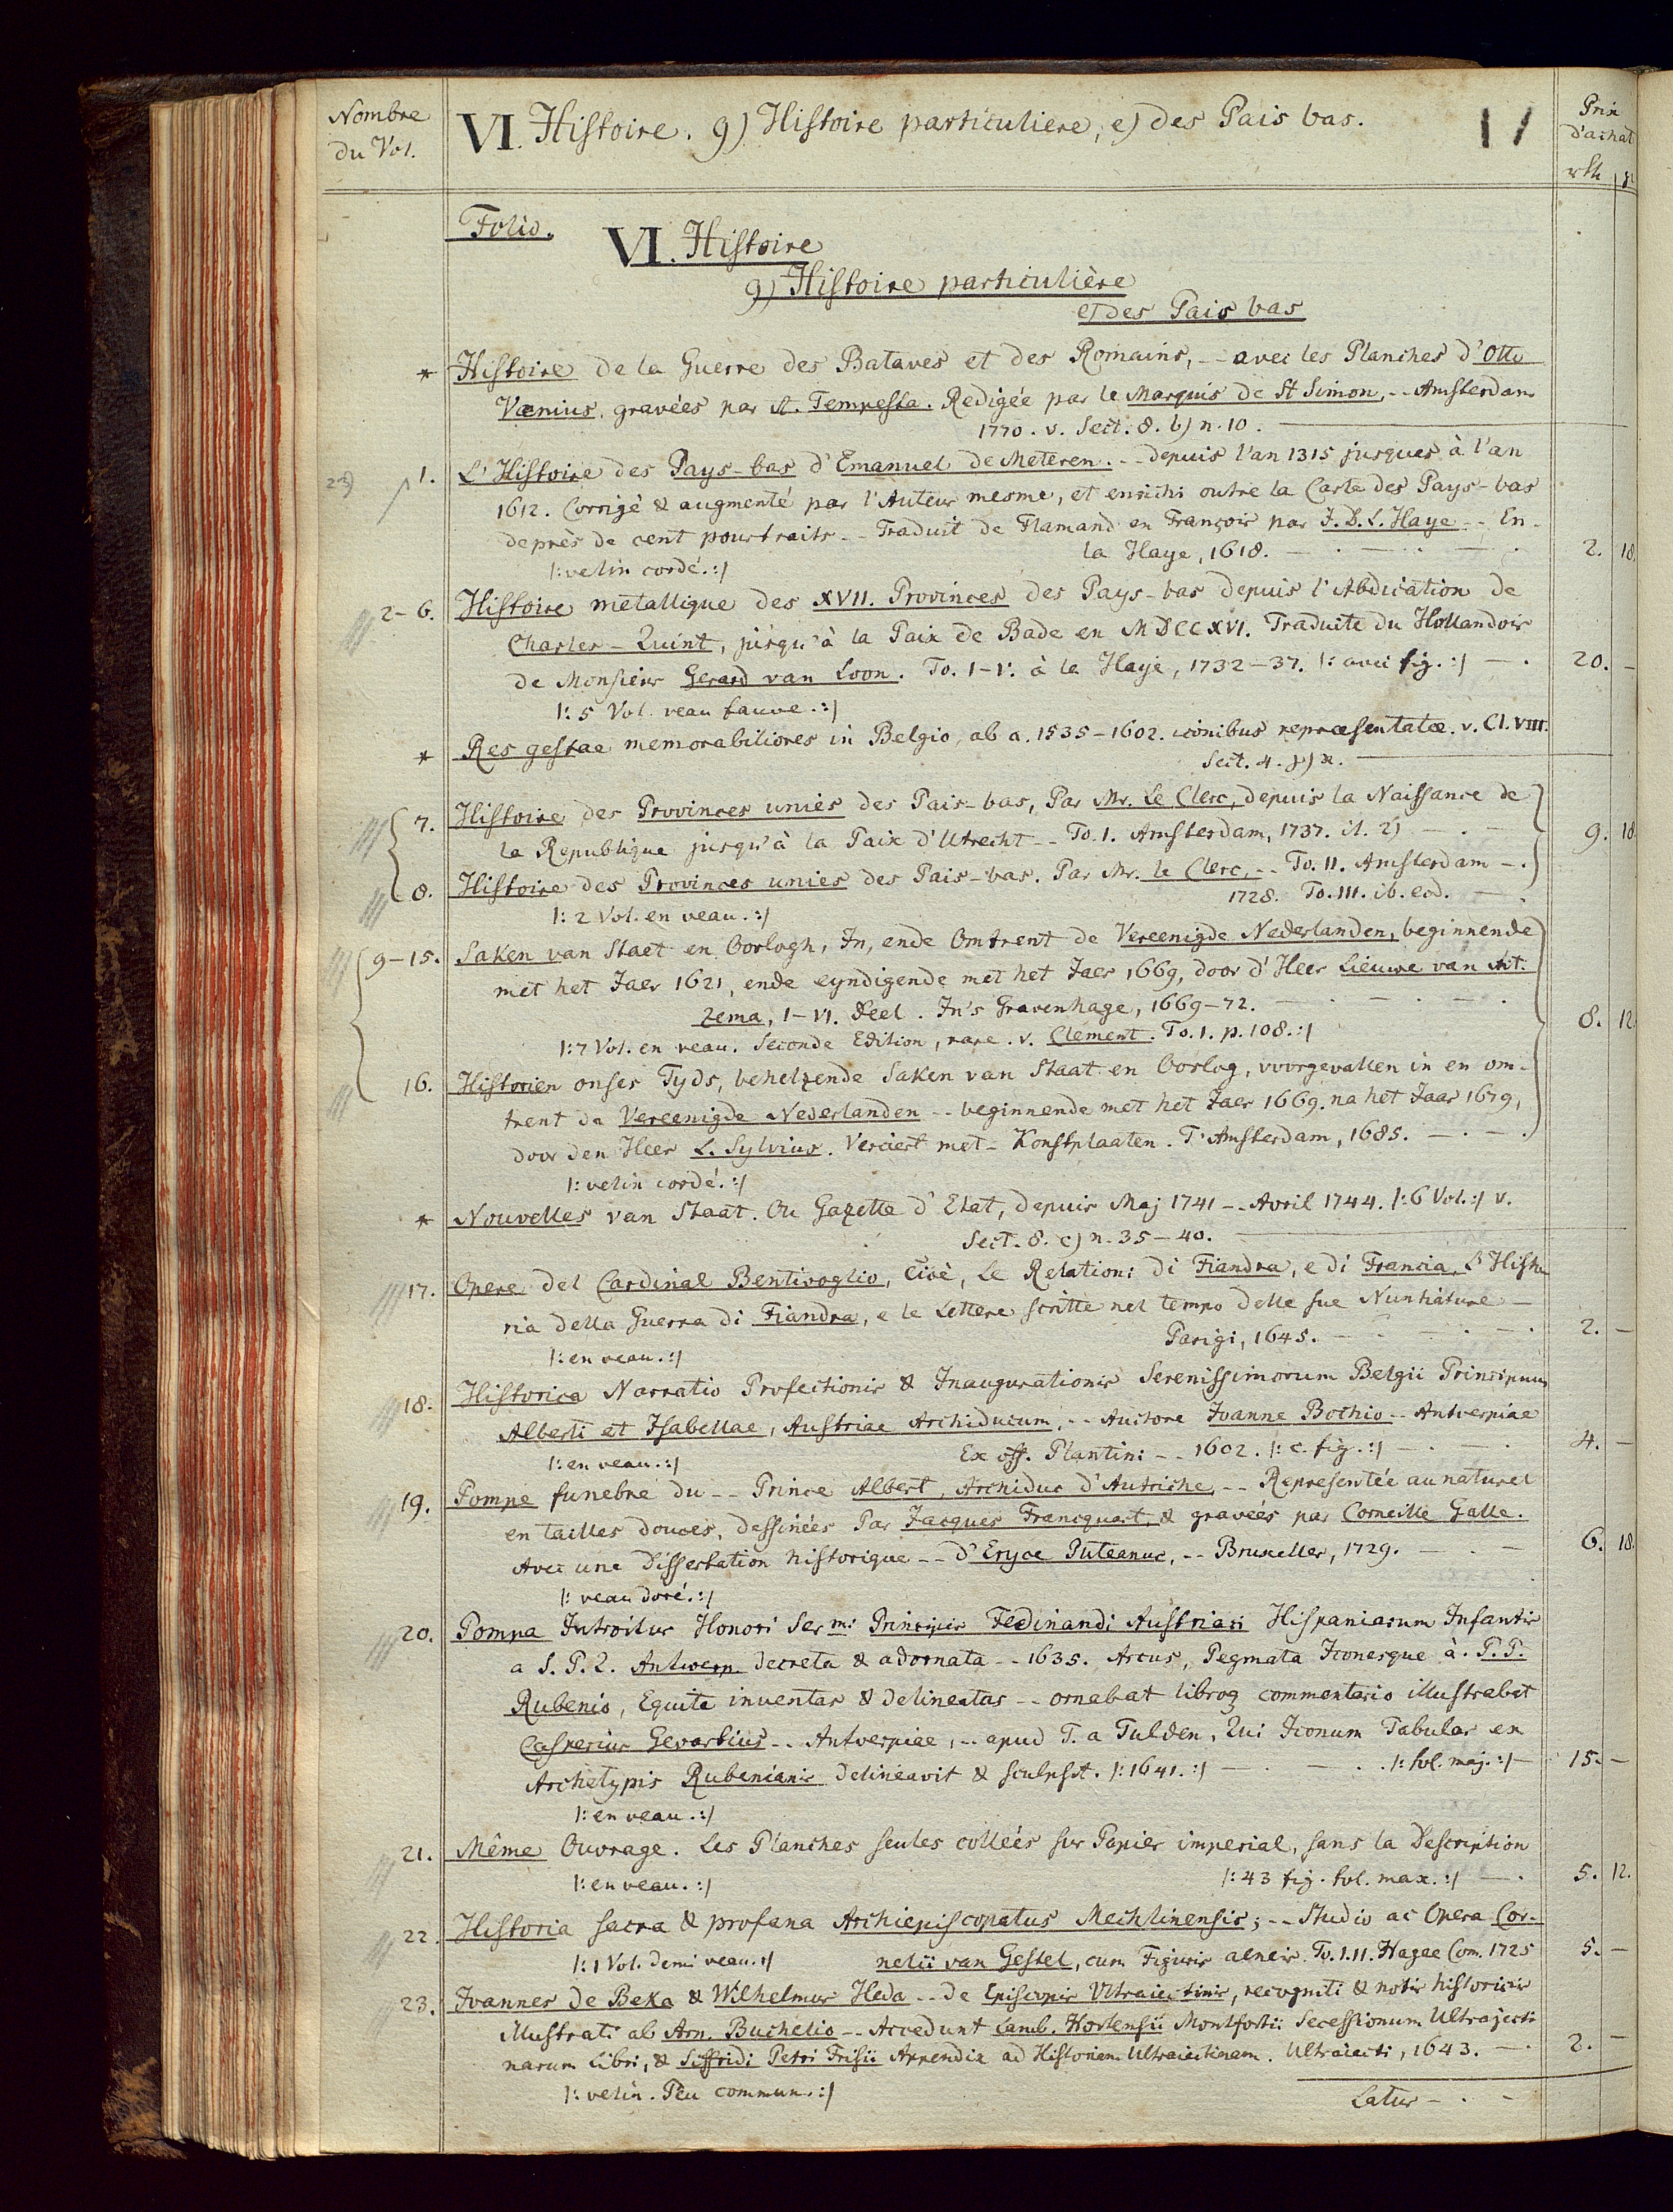 Nombre
du Vol.
VI. Histoire. g) Histoire particuliere, e) des Pais bas.
Prix
d'achât
rth | gr
Folio.
VI. Histoire
g) Histoire particulière
e) des Pais bas
* Histoire de la Guerre des Bataves et des Romains, -- avec les Planches d'Otto
Vænius, gravées par A. Tempesta. Redigée par le Marquis de St Simon, -- Amsterdam
1770. v. Sect. 8. b) n. 10.
23) 1. L'Histoire des Pays-bas d'Emanuel de Meteren. -- depuis l'an 1315 jusques à l'an
1612. Corrigé & augmenté par l'Auteur mesme, et enrichi outre la Carte des Pays-bas
de près de cent pourtraits -- Traduit de Flamand en François par J.D.L. Haye -- En
la Haye, 1618. - . - . - . 2. 18.
|: velin cordé. :|
2-6. Histoire métallique des XVII. Provinces des Pays-bas depuis l'Abdication de
Charles-Quint, jusqu'à la Paix de Bade en MDCCXVI. Traduite du Hollandois
de Monsieur Gerard van Loon. To. I-V. à la Haye, 1732-37. |: avec fig. :| - . 20. -
|: 5 Vol. veau fauve. :|
* Res gestae memorabiliores in Belgio, ab a. 1535-1602. iconibus repræsentatæ. v. Cl. VIII.
Sect. 4.
7. Histoire des Provinces unies des Pais-bas, Par Mr. Le Clerc, depuis la Naissance de
la Republique jusqu'à la Paix d'Utrecht -- To. I. Amsterdam, 1737. it. 2) - . - 9. 18
8. Histoire des Provinces unies des Pais-bas. Par Mr. le Clerc, -- To. II. Amsterdam - .
1728. To. III. ib. eod. - .
|: 2 Vol. en veau. :|
9-15. Saken van Staet en Oorlogh, In, ende Omtrent de Vereenigde Nederlanden, beginnende
met het Jaer 1621, ende eyndigende met het Jaer 1669, door d'Heer Lieuwe van Ait-
zema, I-VI. Deel. In's Gravenhage, 1669-72. - . - . - . 8. 12
|: 7 Vol. en veau. Seconde Edition, rare. v. Clement. To. I. p. 108. :|
16. Historien onses Tyds, behelzende Saken van Staat en Oorlog, voorgevallen in en om-
trent de Vereenigde Nederlanden -- beginnende met het Jaer 1669. na het Jaar 1679,
door den Heer L. Sylvius. Verciert met - Konstplaaten. T'Amsterdam, 1685. - . - .
|: velin cordé. :|
* Nouvelles van Staat. Ou Gazette d'Etat, depuis Maj 1741 -- Avril 1744. |: 6 Vol. :| v.
Sect. 8. c) n. 35-40.
17. Opere del Cardinal Bentivoglio, Cioè, Le Relationi di Fiandra, e di Francia, L'Histo
ria della Guerra di Fiandra, e le Lettere scritte nel tempo delle sue Nuntiature -
Parigi, 1645. - . - . - . 2. -
|: en veau. :|
18. Historica Narratio Profectionis & Inaugurationis Serenissimorum Belgii Principum
Alberti et Isabellae, Austriae Archiducum, -- Auctore Joanne Bochio -- Antverpiae
Ex off. Plantini -- 1602. |: c. fig. :| - . - . 4. -
|: en veau. :|
19. Pompe funebre du -- Prince Albert, Archiduc d'Autriche, -- Representée au naturel
en tailles douces, dessinées Par Jacques Francquart, & gravées par Corneille Galle.
Avec une Dissertation historique -- d'Eryce Puteanus, -- Bruxelles, 1729. - . - 6. 18.
|: veau doré. :|
20. Pompa Introitus Honori Ser mi Principis Ferdinandi Austriaci Hispaniarum Infantis
a S. P. Q. Antwerp. decreta & adornata -- 1635. Arcus, Pegmata Iconesque à. P. P.
Rubenio, Equite inventas & delineatas -- ornabat libroq commentario illustrabat
Casperius Gevartius -- Antverpiae, -- apud T. a Tulden, Qui Iconum Tabulas ex
Archetypis Rubenianis delineavit & sculpsit. |: 1641. :| - . - . . |: fol. maj. :| - 15. -
|: en veau. :|
21. Même Ouvrage. Les Planches seules collées sur Papier imperial, sans la Description
|: en veau. :| |: 43 fig. fol. max. :| - . 5. 12.
22. Historia sacra & profana Archiepiscopatus Mechlinensis; -- Studio ac Opera Cor-
|: 1 Vol. demi veau. :| nelii van Gestel, cum Figuris aeneis. To. I. II. Hagae Com. 1725 5. -
23. Joannes de Beka & Wilhelmus Heda -- de Episcopis Ultraiectinis, recogniti & notis historicis
illustrati ab Arn. Buchelio -- Accedunt Lamb. Hortensii Montfortii Secessionum Ultrajecti
narum Libri, & Siffridi Petri Frisii Appendix ad Historiam Ultraiectinam. Ultraiecti, 1643. - . 2. -
|: velin. Peu commun. :|
Latus - . -